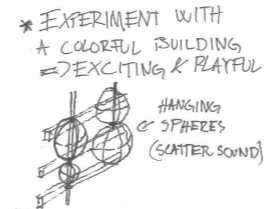 * EXPERIMENT WITH
A COLORFUL BUILDING
=> EXCITING & PLAYFUL
HANGING
SPHERES
(SCATTER SOUND)